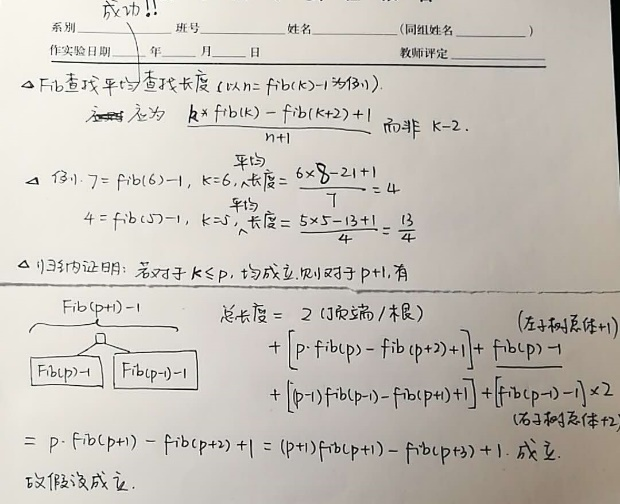 成功!!
系别 班号 姓名 (同组姓名 )
作实验日期 年 月 日 教师评定
△ Fib查找平均查找长度(以n=fib(k)-1为例).
应为 k×fib(k)-fib(k+2)+1 / n+1 而非 k-2.
△ 例. 7=fib(6)-1, k=6, 平均长度= 6×8-21+1 / 7 =4
4=fib(5)-1, k=5, 平均长度= 5×5-13+1 / 4 = 13/4
△ 归纳证明: 若对于k≤p, 均成立.则对于p+1,有
Fib(p+1)-1
Fib(p)-1 Fib(p-1)-1
总长度= 2 (顶端/根)
(左子树总体+1)
+[p·fib(p)-fib(p+2)+1]+fib(p)-1
+[(p-1)fib(p-1)-fib(p+1)+1]+[fib(p-1)-1]×2
(右子树总体+2)
= p·fib(p+1)-fib(p+2)+1=(p+1)fib(p+1)-fib(p+3)+1. 成立.
故假设成立.